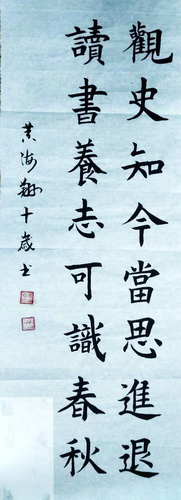 觀史知今當思進退
讀書養志可識春秋
黄海翔十歲书